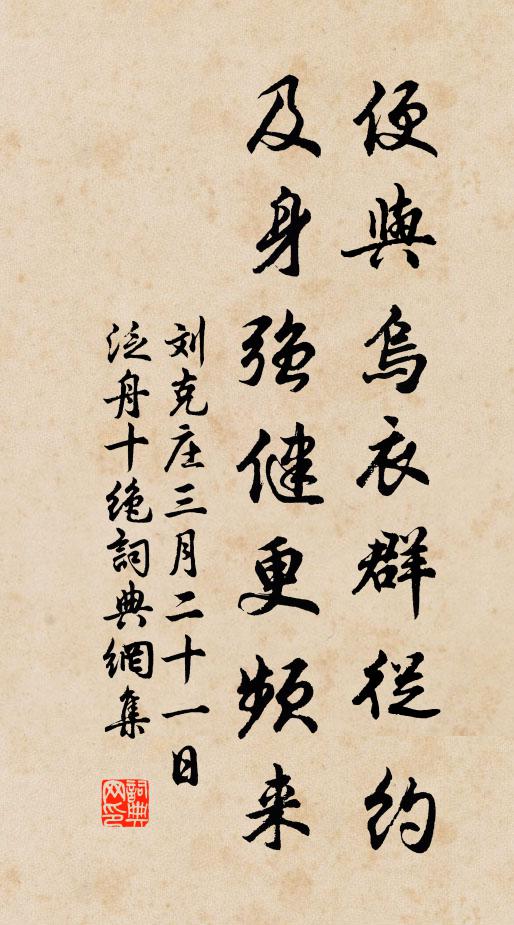 便與烏衣群從約
及身強健更頻来
刘克庄三月二十一日
泛舟十绝詞典網集
詞典网印